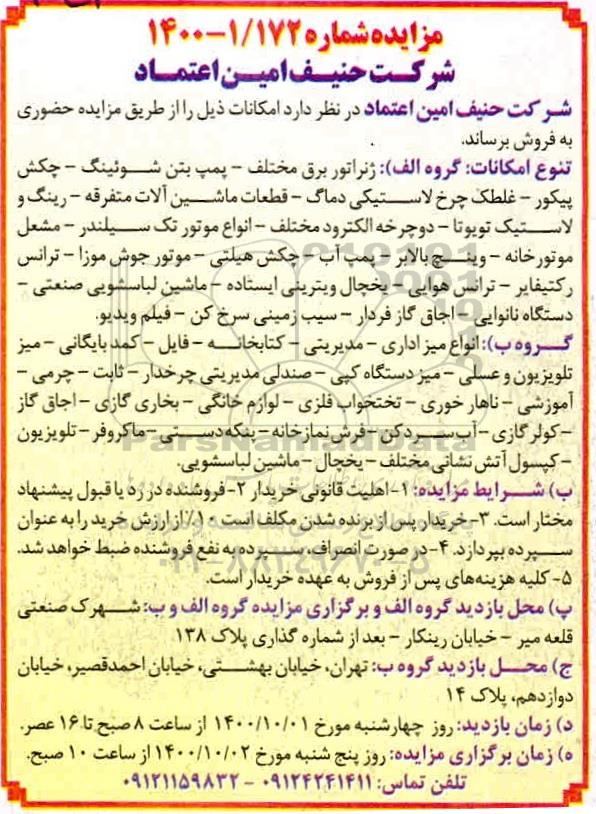 مزایده شماره ۱/۱۷۲-۱۴۰۰
شرکت حنیف امین اعتماد
شرکت حنیف امین اعتماد در نظر دارد امکانات ذیل را از طریق مزایده حضوری
به فروش برساند.
تنوع امکانات: گروه الف): ژنراتور برق مختلف – پمپ بتن شوئینگ – چکش
پیکور – غلطک چرخ لاستیکی دماگ – قطعات ماشین آلات متفرقه – رینگ و
لاستیک تویوتا – دوچرخه الکترود مختلف – انواع موتور تک سیلندر – مشعل
موتورخانه – وینچ بالابر – پمپ آب – چکش هیلتی – موتور جوش موزا – ترانس
رکتیفایر – ترانس هوایی – یخچال ویترینی ایستاده – ماشین لباسشویی صنعتی –
دستگاه نانوایی – اجاق گاز فردار – سیب زمینی سرخ کن – فیلم ویدیو.
گروه ب): انواع میز اداری – مدیریتی – کتابخانه – فایل – کمد بایگانی – میز
تلویزیون و عسلی – میز دستگاه کپی – صندلی مدیریتی چرخدار – ثابت – چرمی –
آموزشی – ناهار خوری – تختخواب فلزی – لوازم خانگی – بخاری گازی – اجاق گاز
– کولر گازی – آب سرد کن – فرش نمازخانه – پنکه دستی – ماکروفر – تلویزیون
– کپسول آتش نشانی مختلف – یخچال – ماشین لباسشویی.
ب) شرایط مزایده: ۱- اهلیت قانونی خریدار ۲- فروشنده در رد یا قبول پیشنهاد
مختار است. ۳- خریدار پس از برنده شدن مکلف است ۱۰٪ از ارزش خرید را به عنوان
سپرده بپردازد. ۴- در صورت انصراف، سپرده به نفع فروشنده ضبط خواهد شد.
۵- کلیه هزینه‌های پس از فروش به عهده خریدار است.
پ) محل بازدید گروه الف و برگزاری مزایده گروه الف و ب: شهرک صنعتی
قلعه میر – خیابان رینکار – بعد از شماره گذاری پلاک ۱۳۸
ج) محل بازدید گروه ب: تهران، خیابان بهشتی، خیابان احمدقصیر، خیابان
دوازدهم، پلاک ۱۴
د) زمان بازدید: روز چهارشنبه مورخ ۱۴۰۰/۱۰/۰۱ از ساعت ۸ صبح تا ۱۶ عصر.
ه) زمان برگزاری مزایده: روز پنج شنبه مورخ ۱۴۰۰/۱۰/۰۲ از ساعت ۱۰ صبح.
تلفن تماس: ۰۹۱۲۴۲۴۱۴۱۱ – ۰۹۱۲۱۱۵۹۸۳۲
ParsNamadData
۰۲۱-۸۸۳۴۹۶۷۰-۵